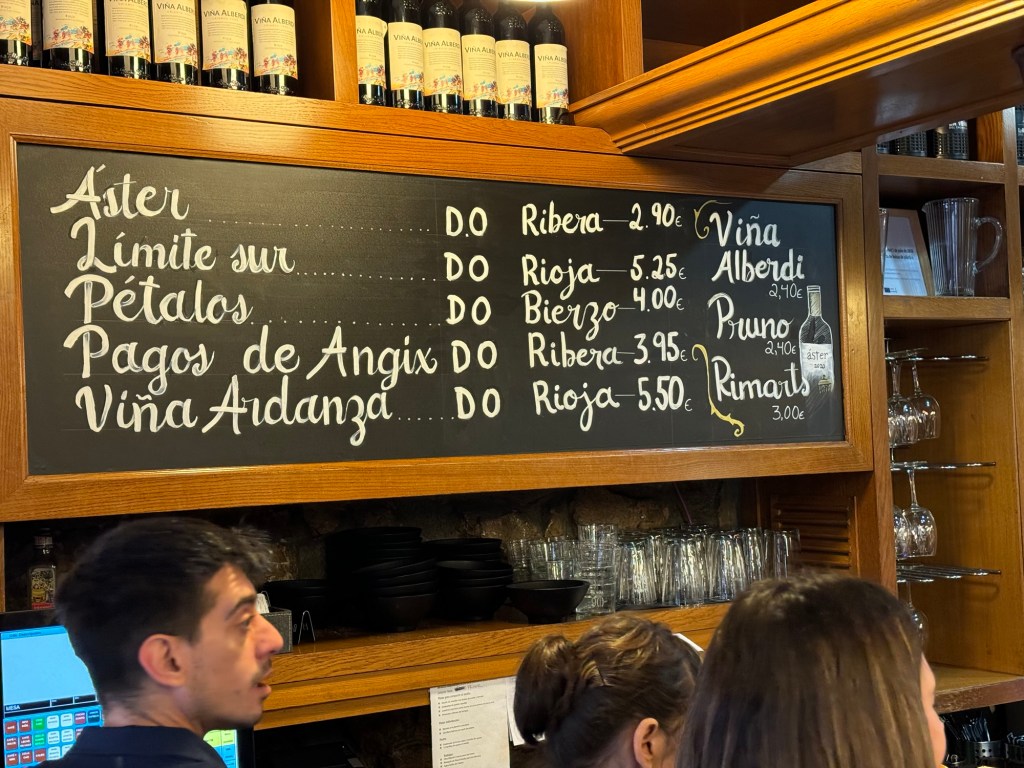 VIÑA ALBERDI
VIÑA ALBERDI
VIÑA ALBERDI
VIÑA ALBERDI
VIÑA ALBERDI
VIÑA ALBERDI
Áster ................ D.O Ribera—2.90€
Límite sur ................ DO Rioja—5.25€
Pétalos ................ DO Bierzo—4.00€
Pagos de Angix DO Ribera—3.95€
Viña Ardanza .... DO Rioja—5.50€
Viña
Alberdi
2,40€
Pruno
2,40€
Rimarts
3,00€
áster
MESA